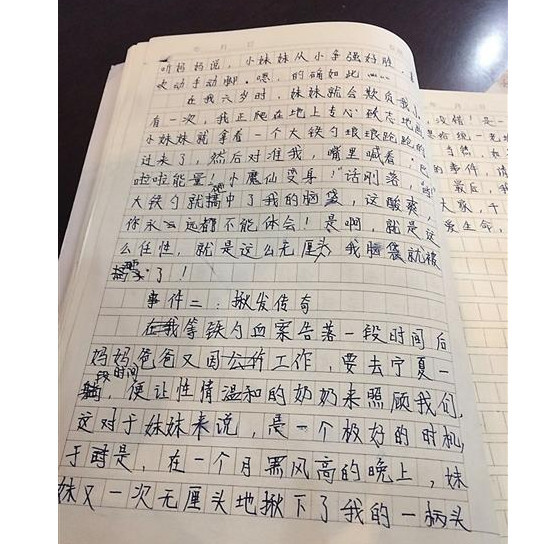 听妈妈说，小妹妹从小争强好胜，喜
欢动手动脚。嗯，的确如此……
在我六岁时，妹妹就会欺负我了，
有一次，我正爬在地上专心致志地画
小妹妹就拿着一个大铁勺踉踉跄跄的
过来了，然后对准我，嘴里喊着：“巴
啦啦能量！小魔仙变身！”话刚落，
大铁勺就搞中了我的脑袋，这酸爽，
你永远都不能体会！是啊，就是这
么任性，就是这么无厘头，我脑袋就被
了！
事件二：揪发传奇
等铁勺血案告落一段时间后
妈妈爸爸又因公的工作，要去宁夏一
段时间，便让性情温和的奶奶来照顾我们，
这对于妹妹来说，是一个极好的时机，
于是，在一个月黑风高的晚上，妹
妹又一次无厘头地揪下了我的一柄头
没错！是一
当然，如
的事件，请
最后，我
大家，千
爱生命，